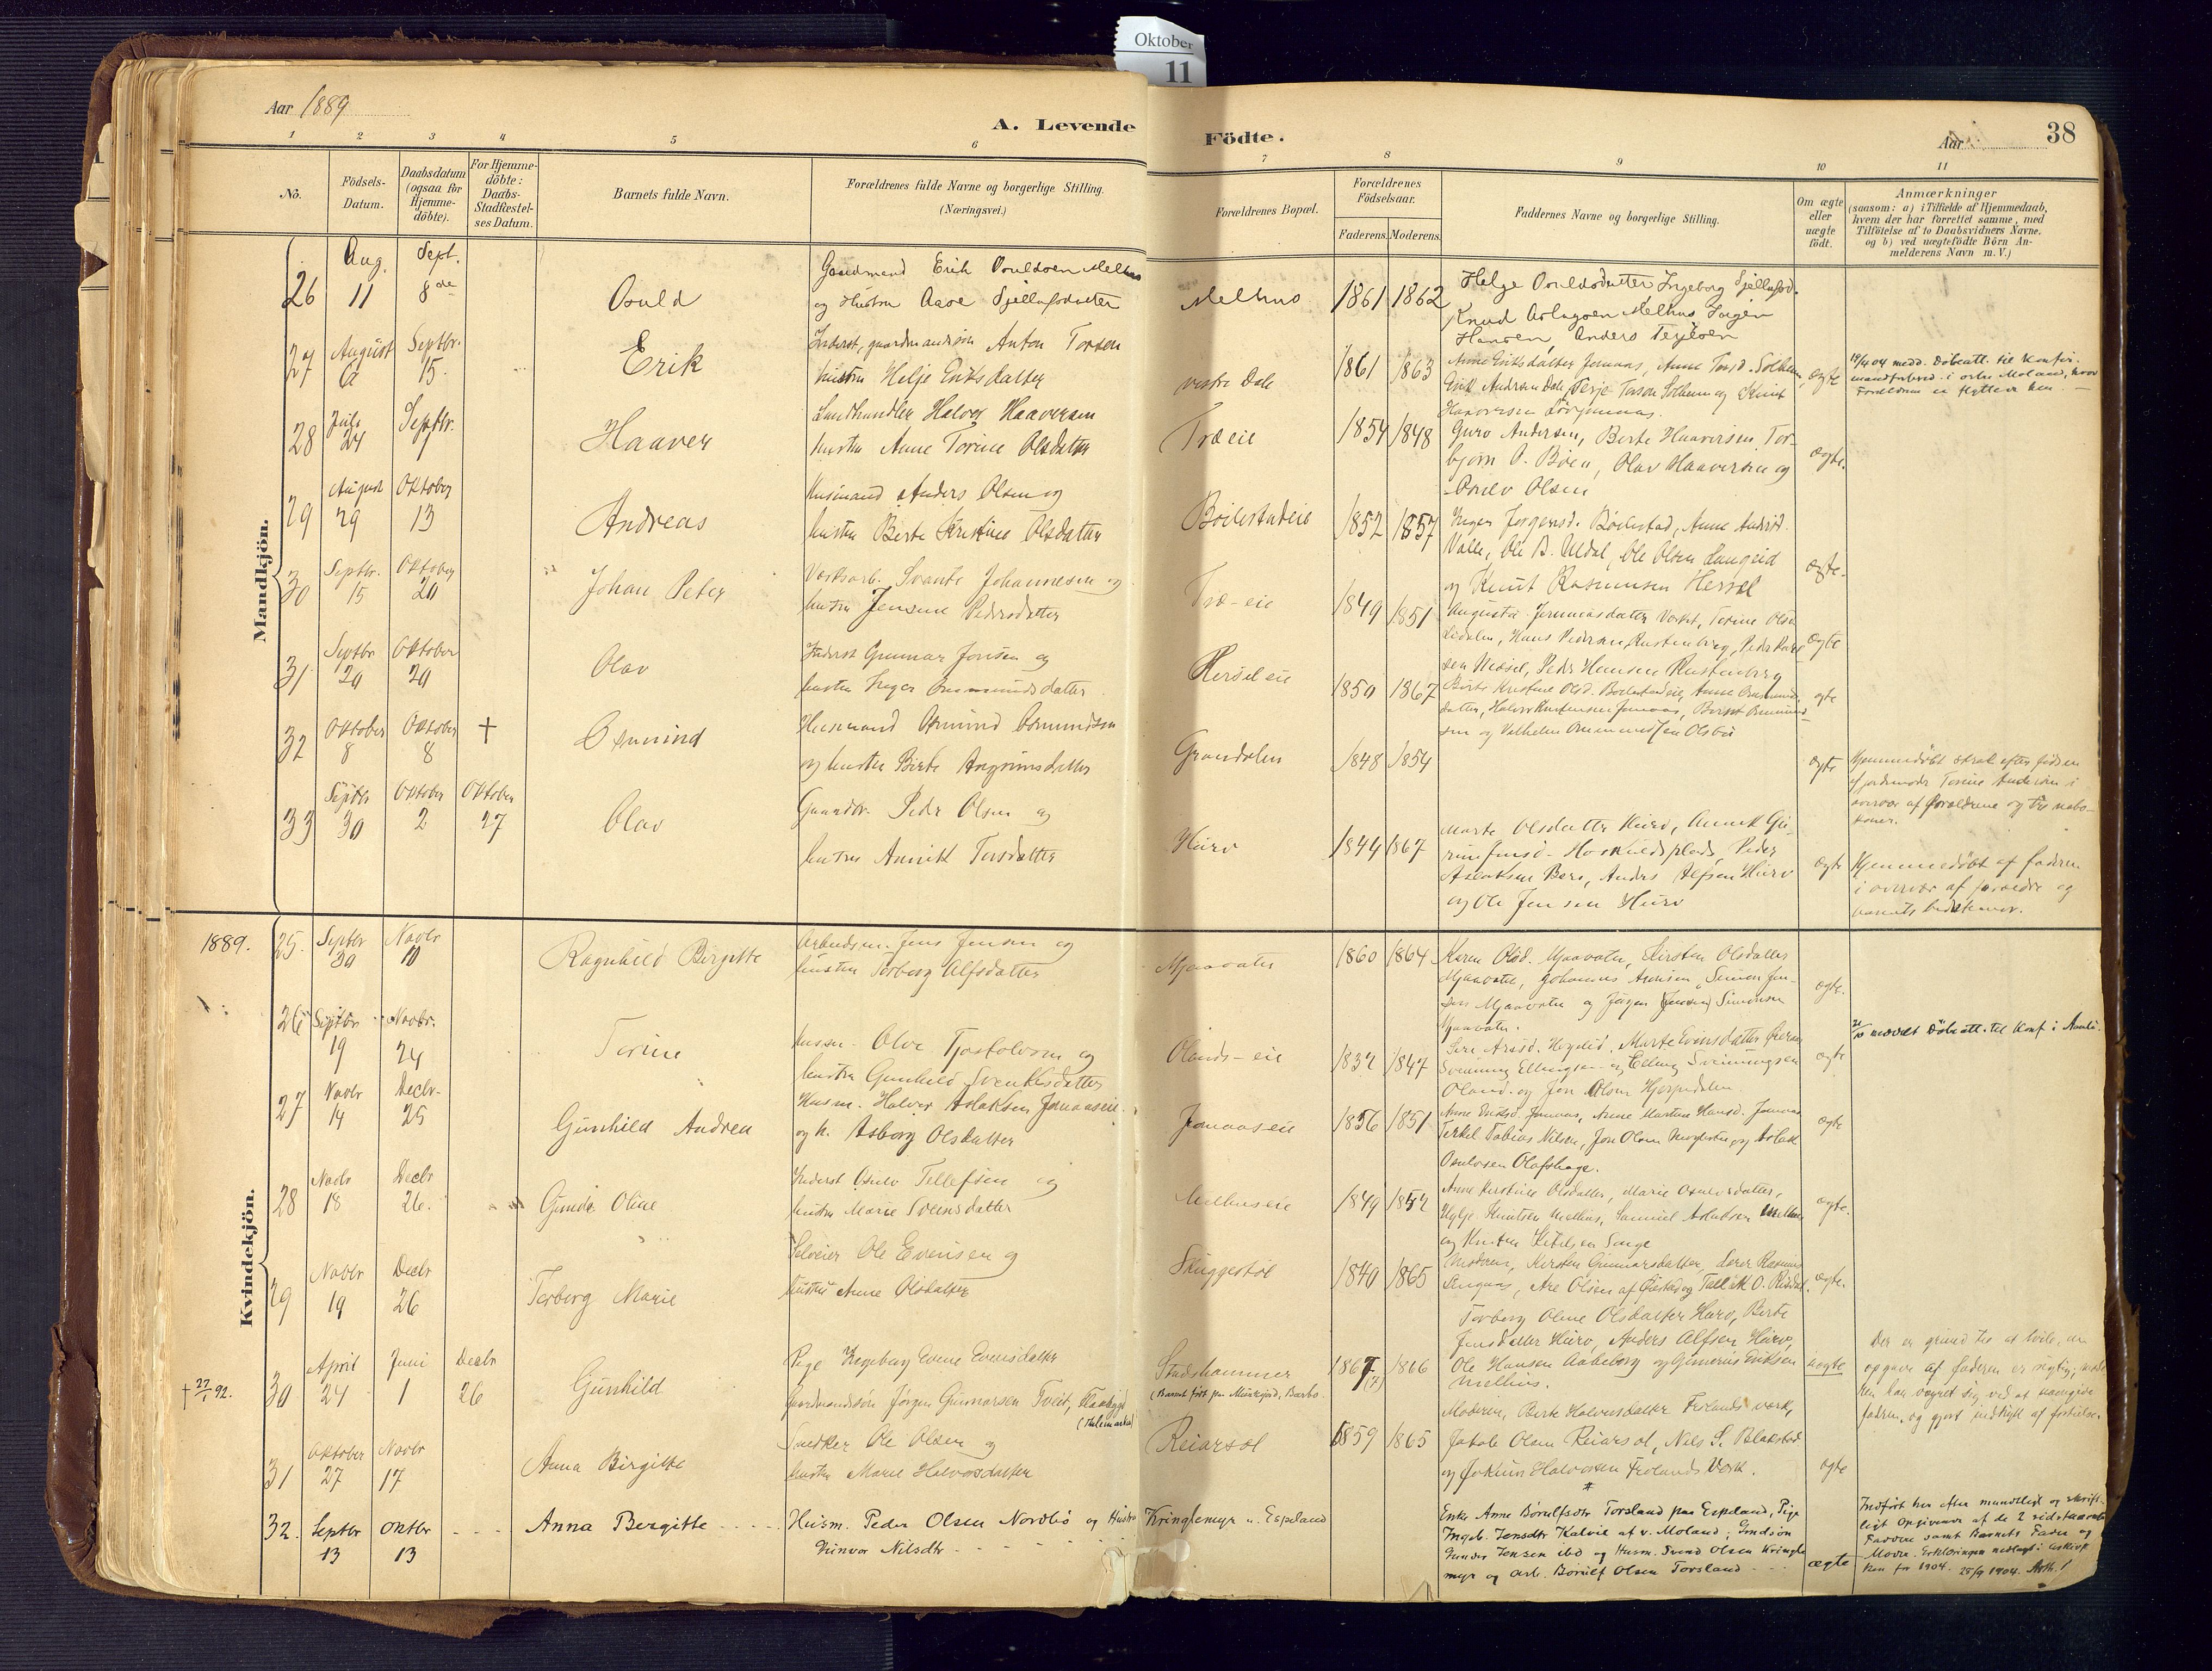 Oktober
11
Aar 1889
A. Levende
Födte.
Aar
38
1 2 3 4 5 6 7 8 9 10 11
No.
Födsels-
Datum.
Daabsdatum
(ogsaa for
Hjemme-
döbte).
For Hjemme-
döbte:
Daabs-
Stadfæstel-
ses Datum.
Barnets fulde Navn.
Forældrenes fulde Navne og borgerlige Stilling.
(Næringsvei.)
Forældrenes Bopæl.
Forældrenes
Födselsaar.
Faderens. Moderens.
Faddernes Navne og borgerlige Stilling.
Om ægte
eller
uægte
födt.
Anmærkninger
(saasom: a) i Tilfælde af Hjemmedaab,
hvem der har forrettet samme, med
Tilföielse af to Daabsvidners Navne.
og b) ved uægtefödte Börn An-
melderens Navn m. V.)
Mandkjön.
26 Aug. 11 Sept. 8de
Osuld
Gaardmand Erik Osuldsen Melhus
og Hustru Aase Gjellufsdatter
Melhus 1861 1862
Helge Osuldsdatter Ingeborg Gjellufsd.
Knud Aslagsen Melhus Jörgen
Hansen, Anders Terjesen
27 August 6 Septbr. 15
Erik
Inderst, gaardmandssön Anton Torsen
hustru Helje Eriksdatter
vestre Dale 1861 1863
Anne Eriksdatter Jomaas, Anne Torsd. Solheim,
Erik Andersen Dale, Terje Torsen Solheim og Knut
Haaversen
ægte
19/4 04 medd. Döbeatt. til Konfir-
mandforbered. i østre Moland, hvor
Forældrene er flyttede hen
28 Juli 24 Septbr. 7
Haaver
Landhandler Halvor Haaversen
hustru Anne Torine Olsdatter
Træeie 1854 1848
Guro Andersen, Berte Haaversen Tor-
bjørn O. Bøen, Olav Haaversen og
Osulv Olsen
ægte.
29 August 29 Oktober 13
Andreas
Husmand Anders Olsen og
hustru Berte Kristine Olsdatter
Böilestadeie 1852 1857
Inger Jørgensd. Böilestad, Anne Andersd.
Valle, Ole B. Uldal, Ole Olsen Haugeid
og Knut Rasmussen Hersel
ægte.
30 Septbr. 15 Oktober 20
Johan Peter
Værksarb. Svante Johannesen og
hustru Jensine Pedersdatter
Træ-eie 1849 1851
Augusta Jeremiasdatter Værket, Torine Olsd.
Lidalen, Hans Pedersen Rustenberg,
Peder Hansen Rustenberg
ægte
31 Septbr 29 Oktober 20
Olav
Inderst Gunnar Jonsen og
hustru Inger Aasmundsdatter
Herseleie 1850 1867
Berte Kristine Olsd. Böilestadeie, Anne Aasmunds-
datter, Halvor Knutsen Jomaas,
og Vilhelm Aasmundsen Olsbu
ægte
32 Oktober 8 Oktober 8 †
Osmund
Husmand Osmund Osmundsen
og hustru Birte Asgrimsdatter
Grandalen 1848 1854
ægte
Hjemmedøbt strak efter fødsen
af jordemoder Torine Andersen i
overvær af forældrene og tre nabo-
koner.
33 Septbr 30 Oktober 2 Oktober 27
Olav
Gaardbr. Peder Olsen og
hustru Annik Torsdatter
Hurv 1844 1867
Marte Olsdatter Hurv, Annik Gu-
Hoskuldsplads, Peder
Aslaksen Bero, Anders Alfsen Hurv
og Ole Jensen Hurv
ægte
Hjemmedøbt af faderen
i overvær af forældre og
barnets bedstemor.
Kvindekjön.
1889.
25. Septbr 30 Novbr 10
Ragnhild Birgitte
Arbeidsm. Jens Jensen og
hustru Torborg Alfsdatter
Mjaavatn 1860 1864
Karen Olsd. Mjaavatn, Kirsten Olsdatter
Mjaavatn, Johannes Asersen, Simon Jen-
sen Mjaavatn og Jörgen (Jensen) Simonsen
Mjaavatn.
ægte.
26 Septbr 19 Novbr. 24
Torine
husm. Olve Tjostolvsen og
hustru Gunhild Svenkesdatter
Olands-eie 1832 1847
Siri Arasd. Heggelid, Marte Evensdatter
Svenning Ellingsen og Elling Svenningsen
Oland og Jon Olsen Hjerpedalen
ægte
meddelt Döbeatt. til Konf. i
27 Novbr 14 Decbr. 25
Gunhild Andrea
Husm. Halvor Aslaksen Jomaaseie
og h. Asborg Olsdatter
Jomaaseie 1856 1851
Anne Eriksd. Jomaas, Anne Martine Hansd. Jomaas
Terkel Tobias Nilsen, Jon Olsen og Aslak
Osulvsen Olafshage.
ægte
28 Novbr 18 Decbr 26.
Gunda Oline
Inderst Osulv Tellefsen og
hustru Marie Svensdatter
Melhuseie 1849 1852
Anne Kirstine Olsdatter, Marie Osulvsdatter,
Hylje Knutsen Melhus, Samuel Aslaksen Melhus
og Knuten Ketilsen Songe
ægte.
29 Novbr 19 Decbr 26
Torborg Marie
Selveier Ole Evensen og
hustru Anne Olsdatter
Skuggestøl 1840 1865
Moderen, Kirsten Gunnarsdatter, Lærer Rasmus
Are Olsen af Øiestad og Tallak O. Risdal.
ægte.
† 27/1 92.
30 April 24 Juni 1 Decbr 26
Gunhild
Pige Ingeborg Evine Evensdatter
gaardmandssön Jørgen Gunnarsen Tveit, Flaabygd
(Thelemarken)
Stedshammer
(Barnet født paa Munkejord, Barbo.
1867(?) 1866
Torborg Oline Olsdatter Hurv, Berte
Jensdatter Hurv, Anders Alfsen Hurv,
Ole Hansen Aabeborg og Gunerius Eriksen
Melhus.
uægte
Der er grund til at tvile, om
opgave af faderen er rigtig; moderen
har vægret sig ved at navngive
faderen, og gjort indtryk af
31 Oktober 27 Novbr 17
Anna Birgitte
Snedker Ole Olsen og
hustru Marie Halvorsdatter
Reiarsøl 1859 1865
Moderen, Berte Halvorsdatter Frolands værk,
Jakob Olsen Reiarsøl, Nils S. Blakstad
og Jokum Halvorsen Frolands Værk.
ægte
32. Septbr 13 Oktbr 13
Anna Bergitte
Husm. Peder Olsen Nordbö og Hustru
Gunvor Nilsdtr
Kringlemyr u. Espeland
Enke Anne Börulfsdtr Torsland paa Espeland, Pige
Ingeb. Jensdtr Kalvie af v. Moland, Gmdsön
Gunder Jensen ibd og Husm. Svend Olsen Kringle
myr og arb. Börulf Olsen Torsland
ægte
Indført her efter mundtligt og skrift-
ligt Opgivende af de 2 sidstnævnte
Faddere samt Barnets Fader og
Moder. Erklæringen nedlagt i Arkivpak-
ken for 1904. 25/9 1904.